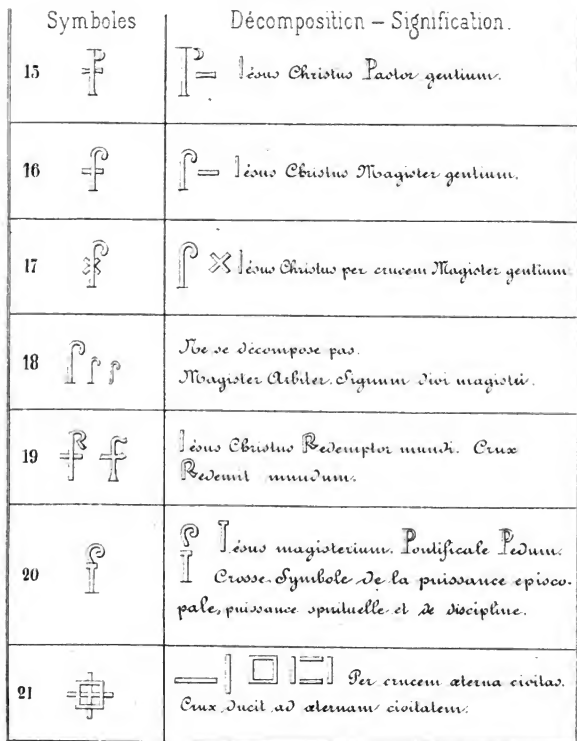 Symboles Décomposition – Signification.
15 Iésus Christus Pastor gentium.
16 Iésus Christus Magister gentium.
17 Iésus Christus per crucem Magister gentium
18 Ne se décompose pas.
Magister Arbiter. Signum divi magisteri.
19 Iésus Christus Redemptor mundi. Crux
Redemit mundum.
20 Iésus magisterium. Pontificale Pedum.
Crosse. Symbole de la puissance episco-
pale, puissance spirituelle et de discipline.
21 Per crucem æterna civitas.
Crux ducit ad æternam civitatem.